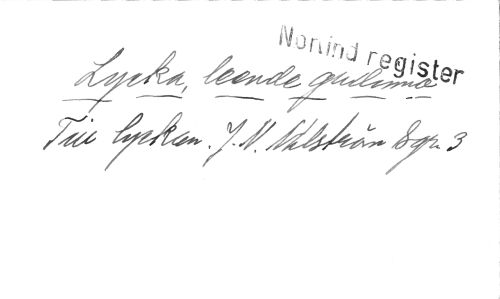 Nonind register
Lycka, leende gudinna
Till lyckan. J. N. Sgr. 3